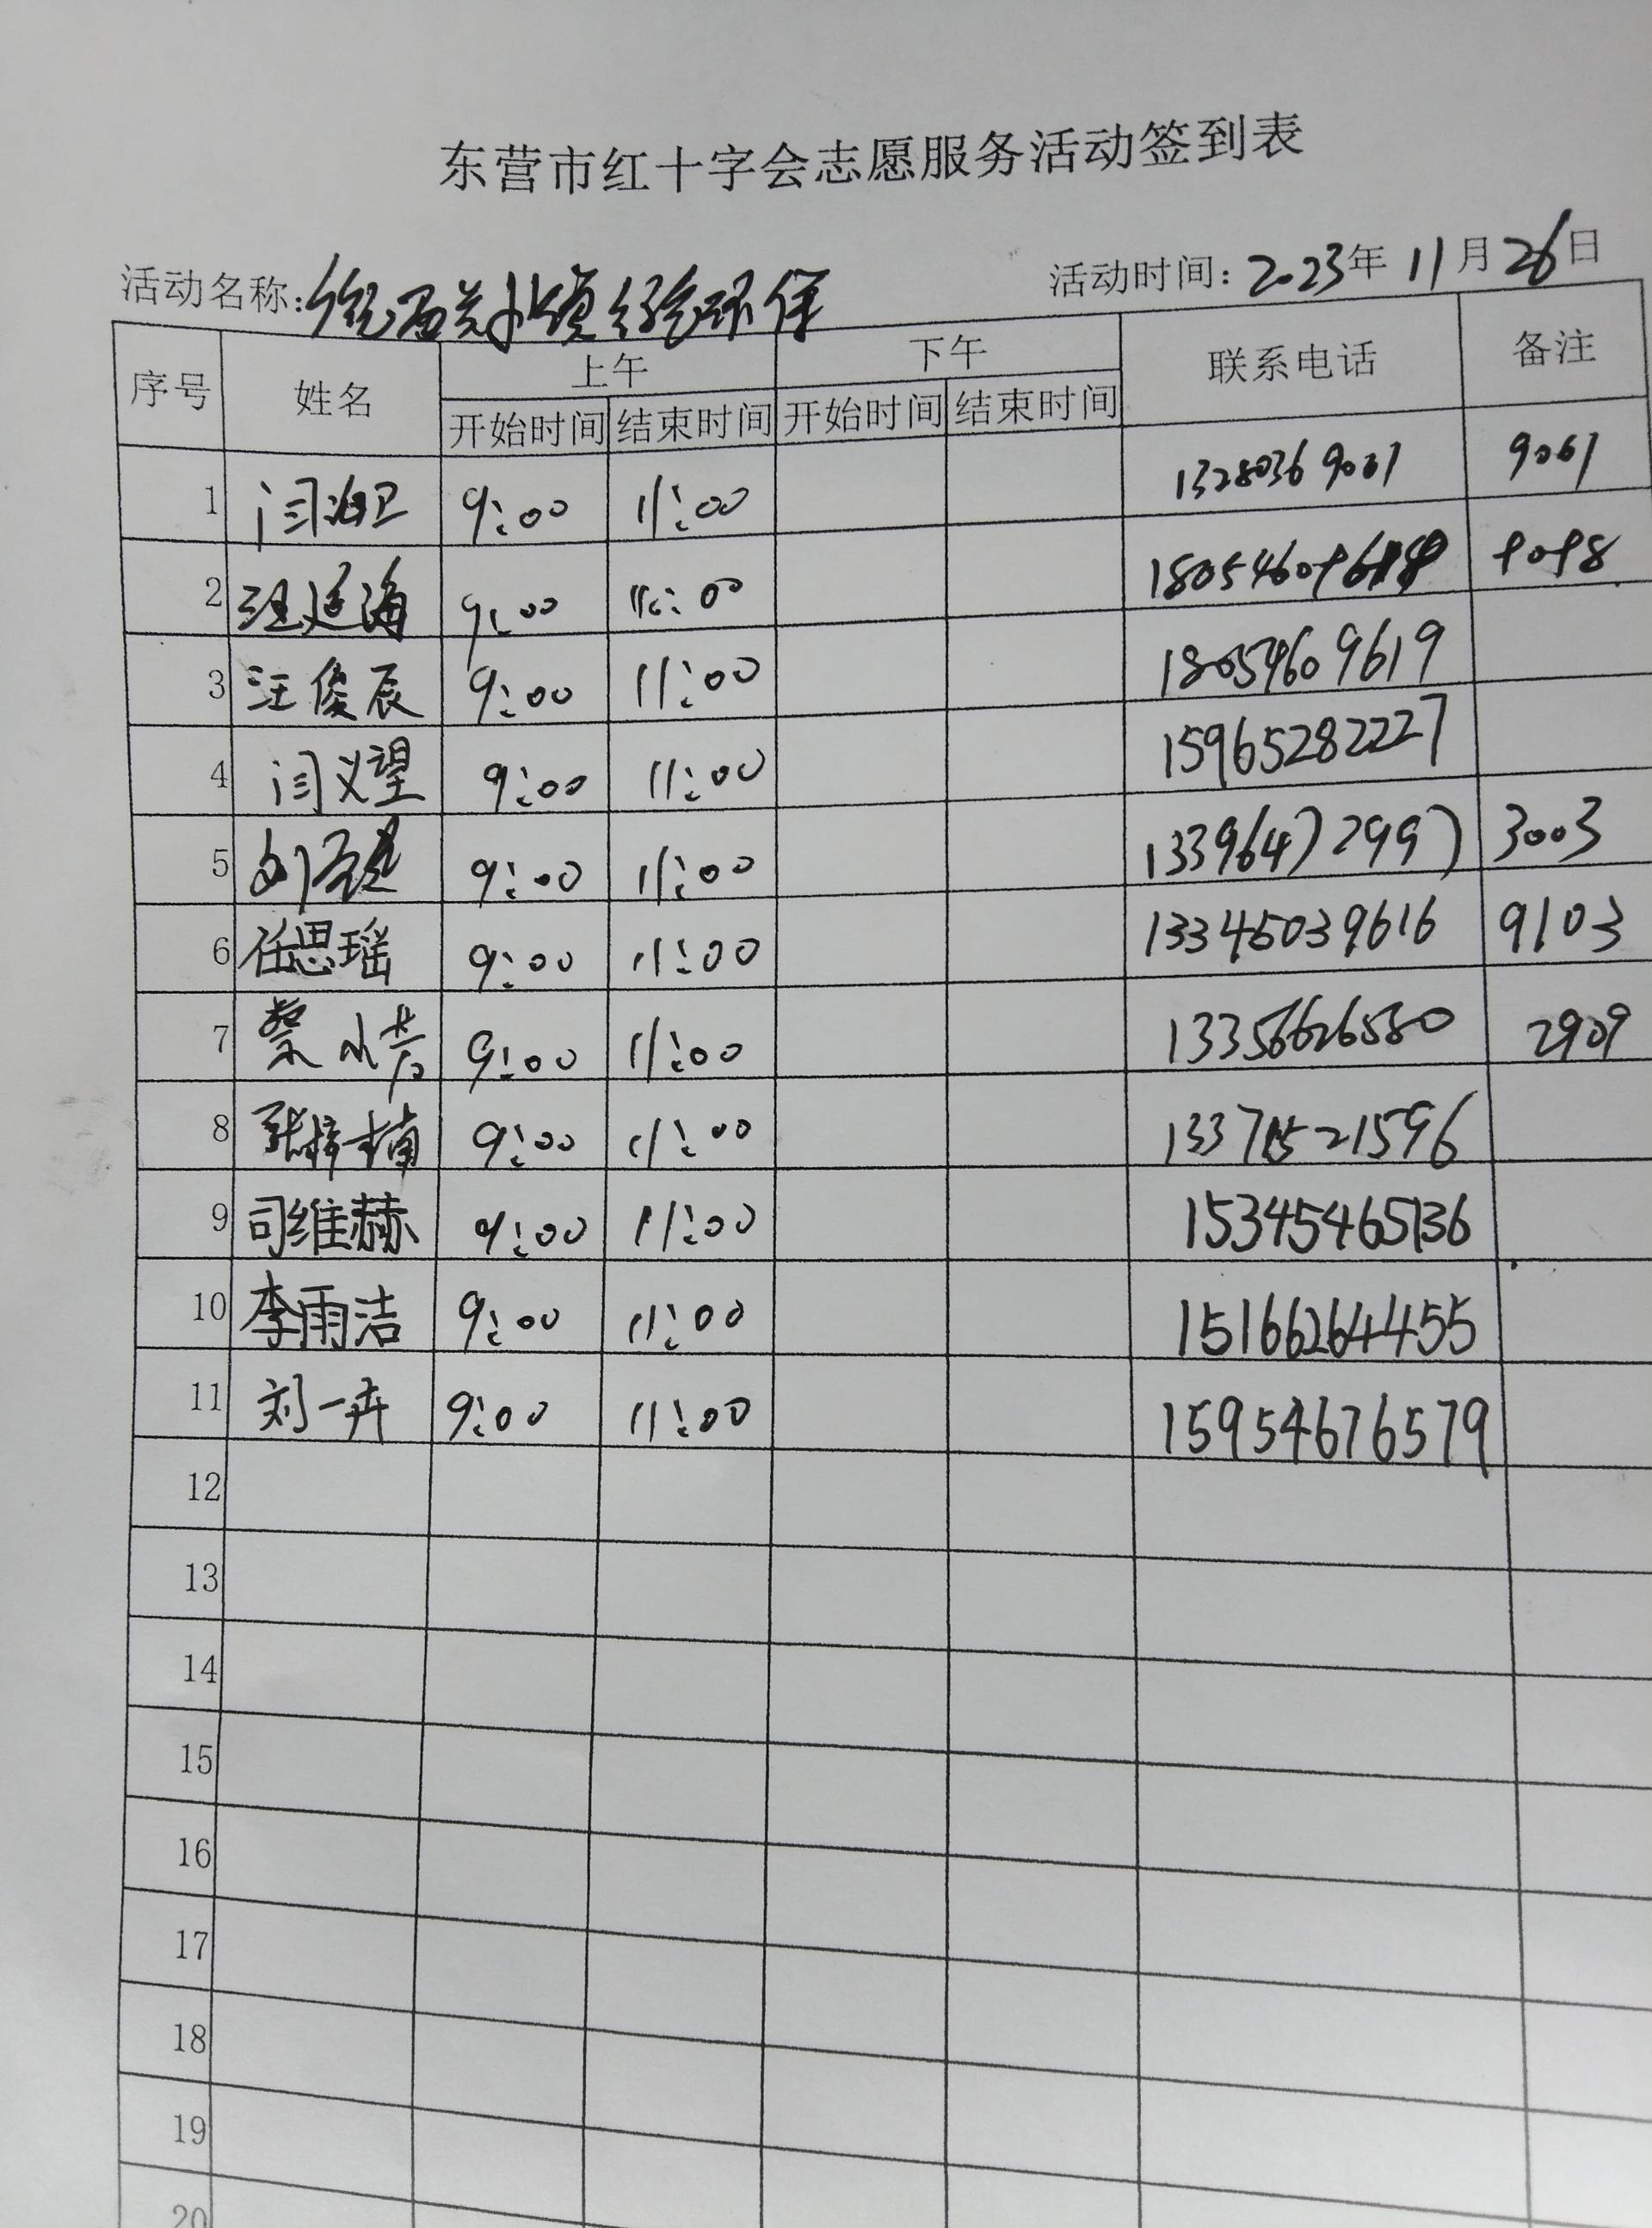 东营市红十字会志愿服务活动签到表
活动名称: 活动时间: 2023年 11月 26日
序号 姓名 上午 下午 联系电话 备注
开始时间 结束时间 开始时间 结束时间
1 闫海卫 9:00 11:00 13280369001 9061
2 汪延海 9:00 11:00 9098
3 汪俊辰 9:00 11:00 18054609619
4 闫义望 9:00 11:00 15965282227
5 9:00 11:00 13396472997 3003
6 任思瑶 9:00 11:00 13345039616 9103
7 9:00 11:00 13356626580 2909
8 张梓楠 9:00 11:00 13371521596
9 司维赫 9:00 11:00 15345465136
10 李雨洁 9:00 11:00 15166264455
11 刘一卉 9:00 11:00 15954676579
12
13
14
15
16
17
18
19
20